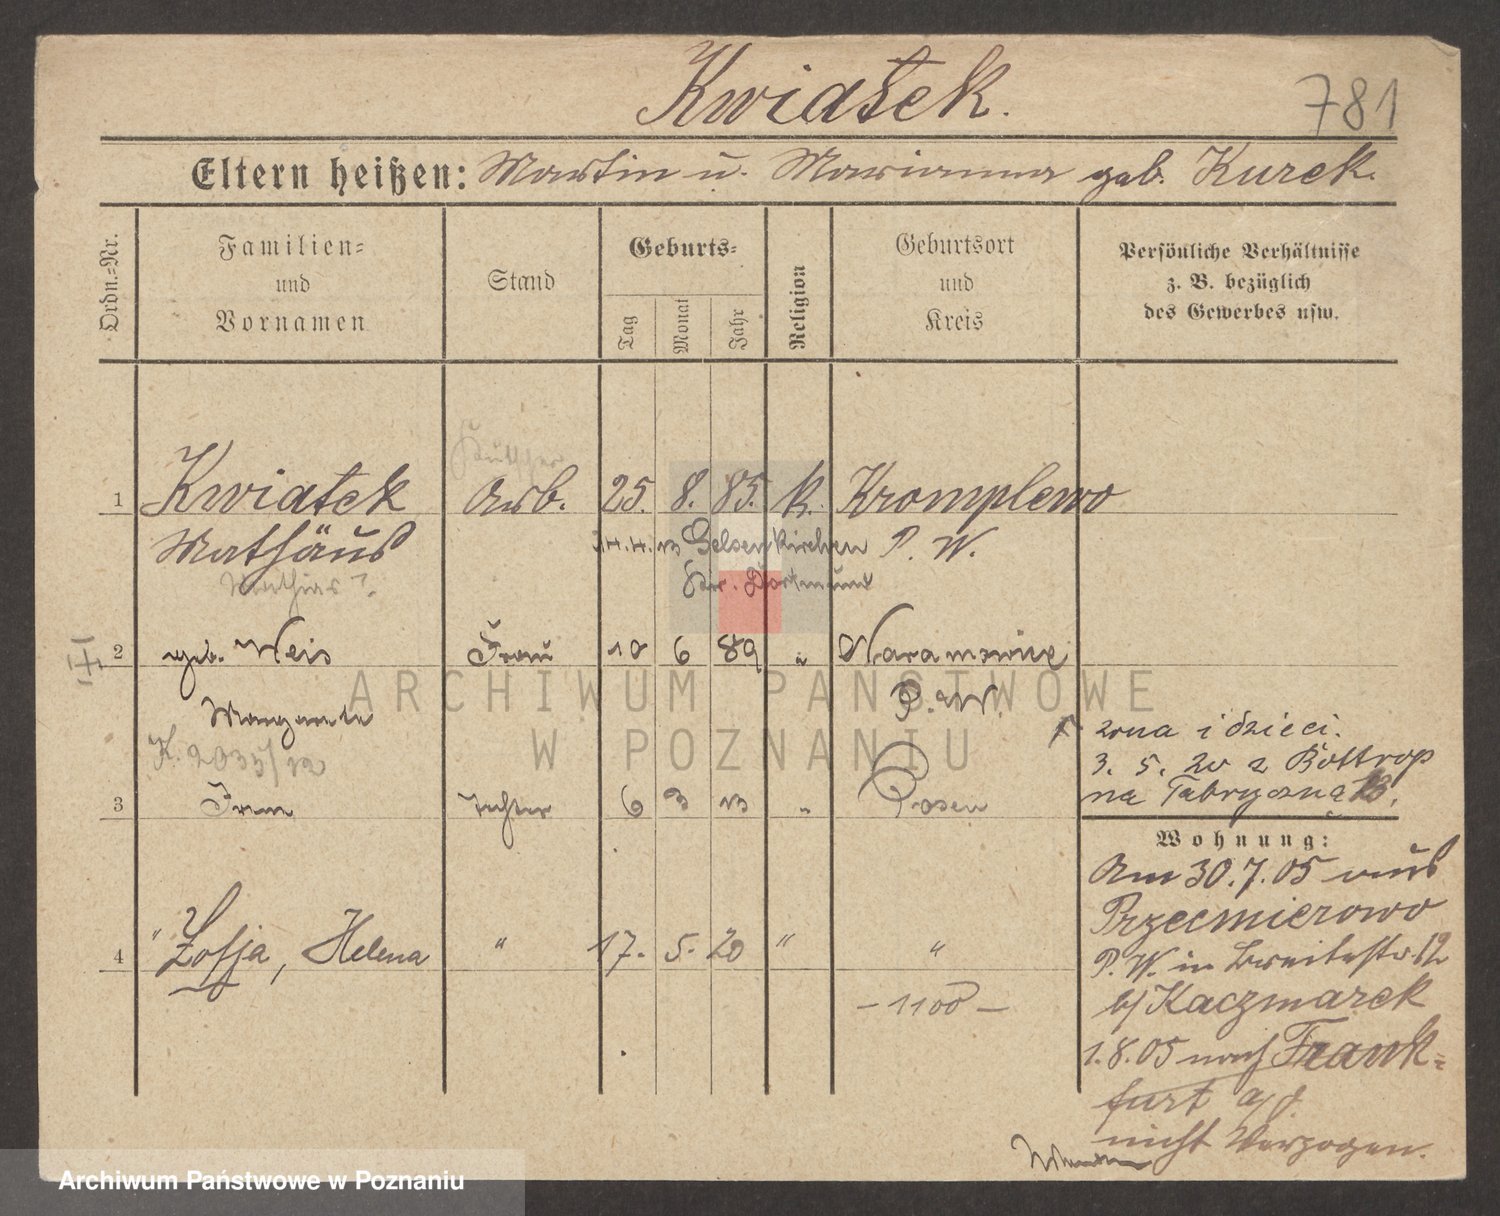 Kwiatek.
781
Eltern heißen: Martin u. Marianna geb. Kurek.
Ordn.=Nr.
Familien=
und
Vornamen
Stand
Geburts=
Tag
Monat
Jahr
Religion
Geburtsort
und
Kreis
Persönliche Verhältnisse
z. B. bezüglich
des Gewerbes usw.
Kutscher
1 Kwiatek Arb. 25. 8. 85. k. Kromplewo
Mathäus Gelsenkirchen P. W.
Mathias ?. Kr. Dortmund
2 geb. Weis Frau 10 6 89 " Naramowice
Margarete P. W.
K. 2035/12
żona i dzieci.
3. 5. 20 z Bottrop
na Fabryczną 13.
3 Irene Tochter 6 3 13 " Posen
Wohnung:
Am 30.7.05 aus
Przecmierowo
P. W. in Breitestr. 12
b/ Kaczmarek
1.8.05 nach Frank=
furt a/O.
nicht Verzogen.
4 " Zofja, Helena " 17. 5. 20 " "
– 1100 –
ARCHIWUM PAŃSTWOWE
W POZNANIU
Archiwum Państwowe w Poznaniu